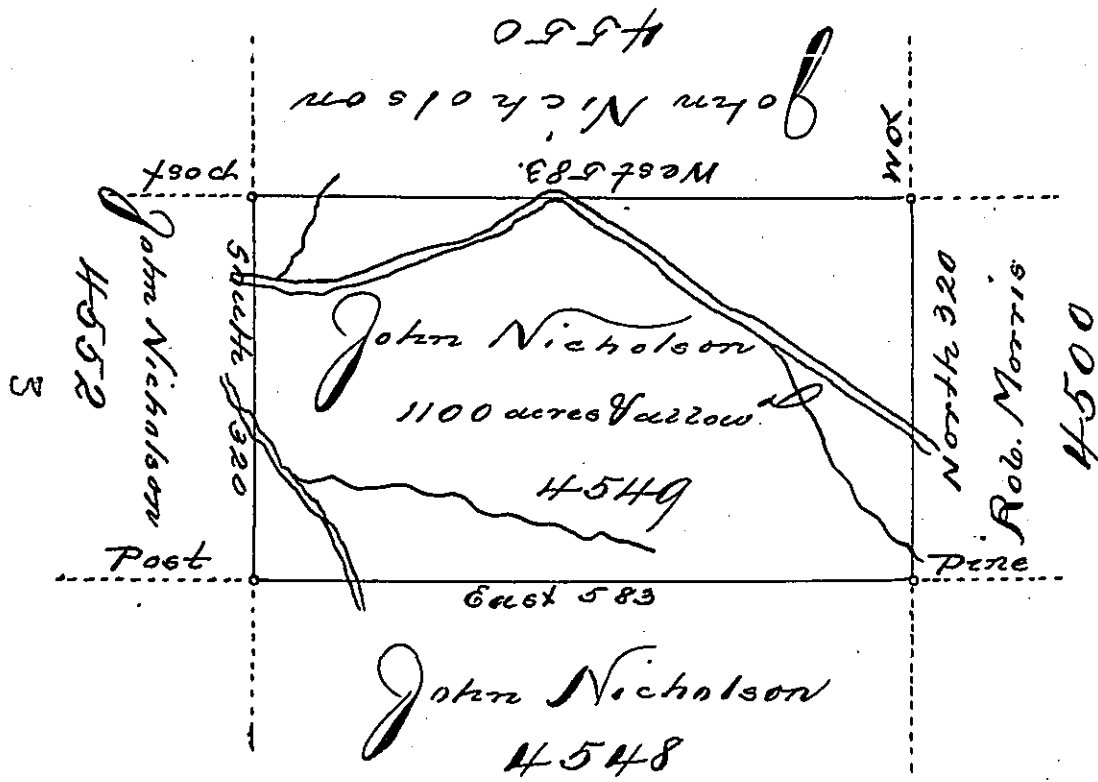 4550
John Nicholson
West 583.
post
John Nicholson
4552
3
South 320
John Nicholson
1100 acres & allow^d
4549
North 320
Rob. Morris
4500
Post
Pine
East 583
John Nicholson
4548